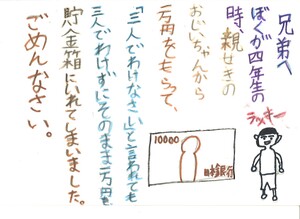 兄弟へ
ぼくが四年生の
時、親せきの
おじいちゃんから
一万円をもらって、
「三人でわけなさい」と言われても
三人でわけずにそのまま一万円を
貯金箱にいれてしまいました。
ごめんなさい。
ラッキー
10000
日本銀行